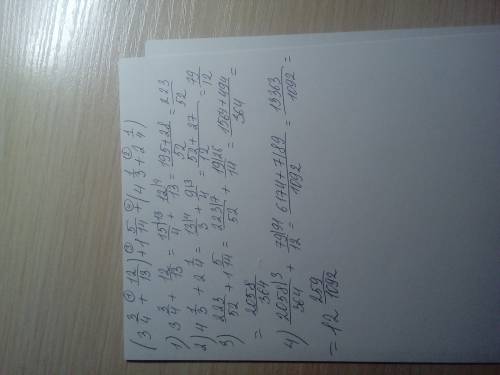 (3 3/4 + 12/13) + 1 5/14 + (4 1/3 + 2 1/4)
1) 3 3/4 + 12/13 = 15|13/4 + 12|4/13 = 195+28/52 = 223/52
2) 4 1/3 + 2 1/4 = 13|4/3 + 9|3/4 = 52+27/12 = 79/12
3) 223/52 + 1 5/14 = 223|7/52 + 19|26/14 = 1564+494/364 =
= 2058/364
4) 2058|3/364 + 79|91/12 = 6174+7189/1092 = 13363/1092 =
= 12 259/1092